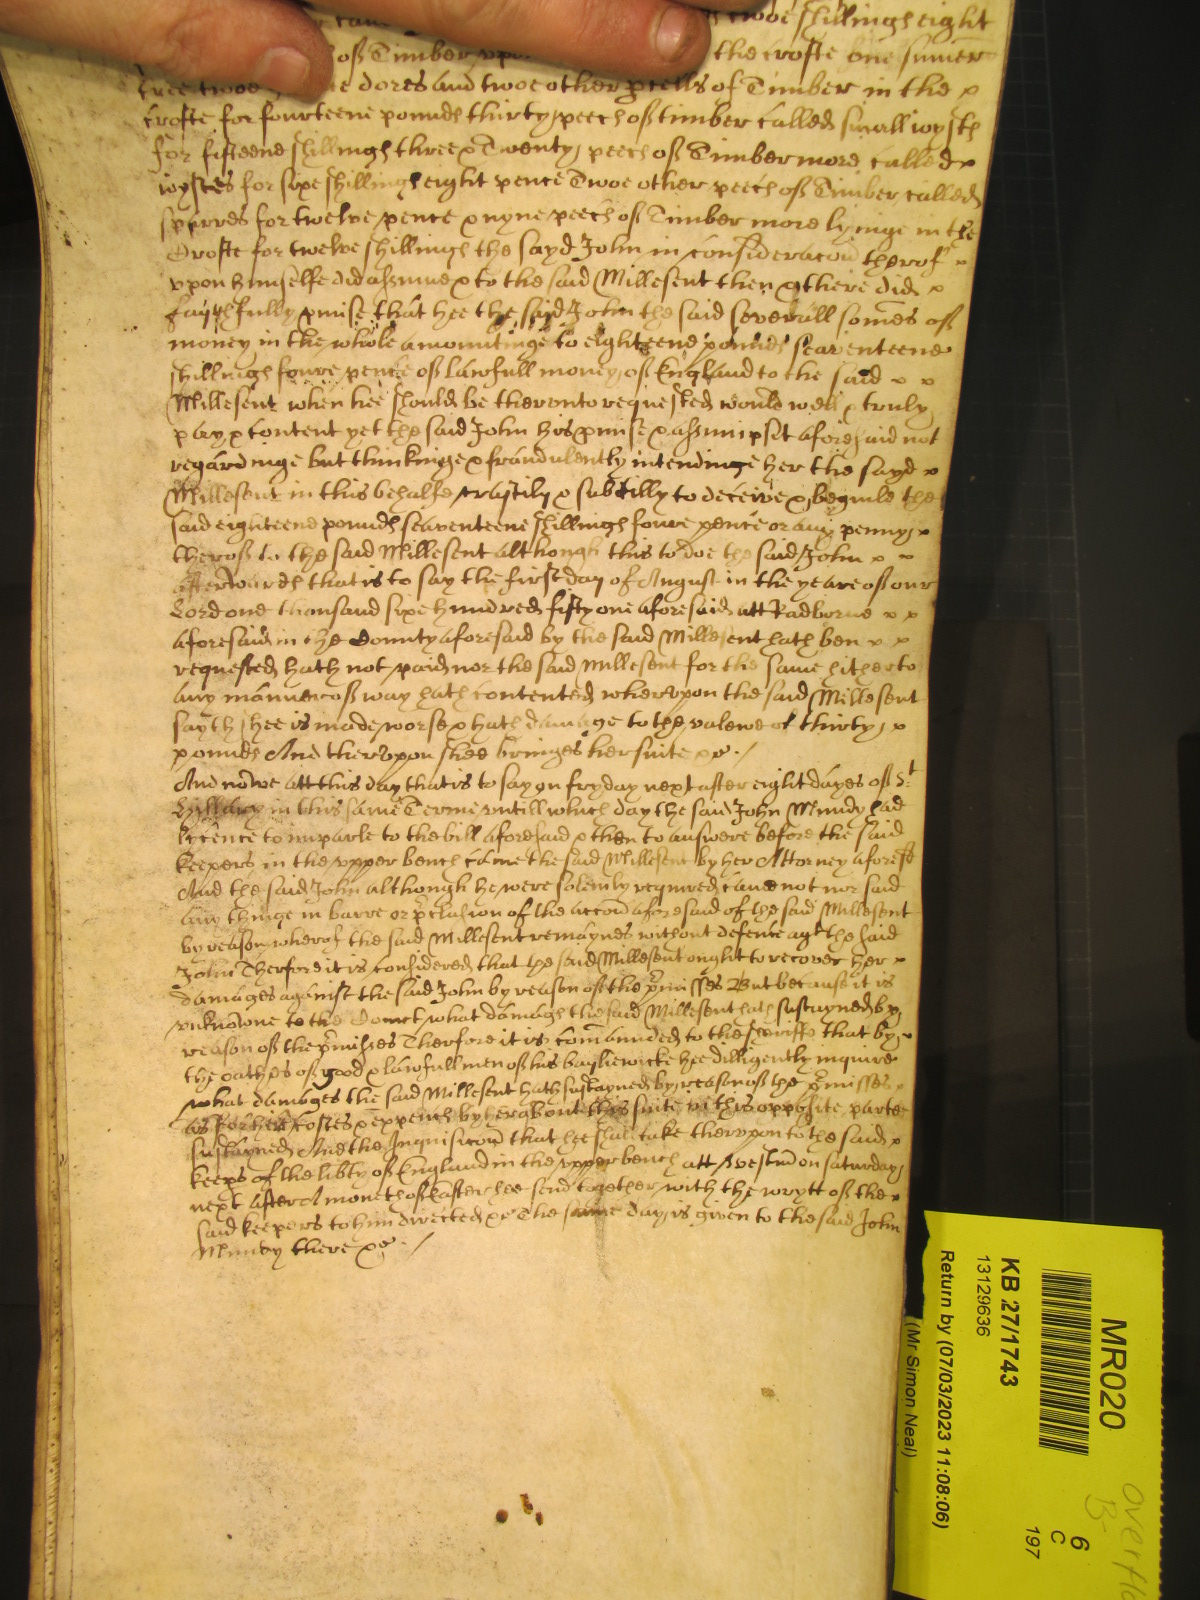 twoe shillings eight
of Timber upon the crofte one sumer
tree twoe dores and twoe other peells of Timber in the x
crofte for fourteene pounds thirty peeces of timber called small joysts
for fifteene shillings three & Twenty peeces of Timber more called x
joystes for sixe shillings eight pence Twoe other peeces of Timber called
sparres for twelve pence & nyne peeces of Timber more lyinge in the
Crofte for twelve shillings the sayd John in consideracon therof x
upon himselfe did assume & to the said Millesent then & there did x
faythfully pmise that hee the said John the said severall somes of
money in the whole amountinge to eighteene pounds seaventeene
shillings foure pence of lawfull money of England to the said x x
Millesent when hee should be therunto requested would well & truly
pay & content yet the said John his pmise & assumpsit aforesaid not
regardinge but thinkinge & fraudulently intendinge her the sayd x
Millesent in this behalfe craftily & subtilly to deceive & beguile the
said eighteene pounds seaventeene shillings foure pence or any penny x
therof to the said Millesent although this to doe the said John x x
afterwards that is to say the first day of August in the yeare of our
Lord one thousand sixe hundred fifty one aforesaid att Radborne x x
aforesaid in the County aforesaid by the said Millesent hath ben x x
requested hath not paid nor the said Millesent for the same hitherto
any manner of way hath contented wherupon the said Millesent
sayth shee is made worse & hath damage to the valewe of thirty x
pounds And therupon shee bringes her suite &c. /
And nowe att this day that is to say on fryday next after eight dayes of St
Hillary in this same Terme untill which day the said John Mundy had
licence to imparle to the bill aforesaid & then to answere before the said
keepers in the upper bench came the said Millesent by her Attorney aforesd
And the said John although he were solemly required came not nor said
any thinge in barre or preclusion of the accon aforesaid of the said Millesent
by reason wherof the said Millesent remaynes without defence agt the said
John Therfore it is considered that the said Millesent ought to recover her x
damages against the said John by reason of the pmisses But because it is
unknowne to the Court what damage the said Millesent hath sustayned by
reason of the pmisses Therfore it is comaunded to the sheriffe that by x
the oathes of good & lawfull men of his bayliewicke hee dilligently inquire
what damages the said Millesent hath sustayned by reason of the pmisses x
as for her costes & expences by her about this suite in this opposite parte
sustayned And the Inquisicon that hee shall take therupon to the said x
keeps of the libty of England in the upper bench att Westm on saturday
next after A moneth of Easter hee send together with the wrytt of the x
said keepers to him directed &c The same day is given to the said John
Mundy there &c. /
MR020
KB 27/1743
13129636
Return by (07/03/2023 11:08:06)
(Mr Simon Neal)
6
C
197